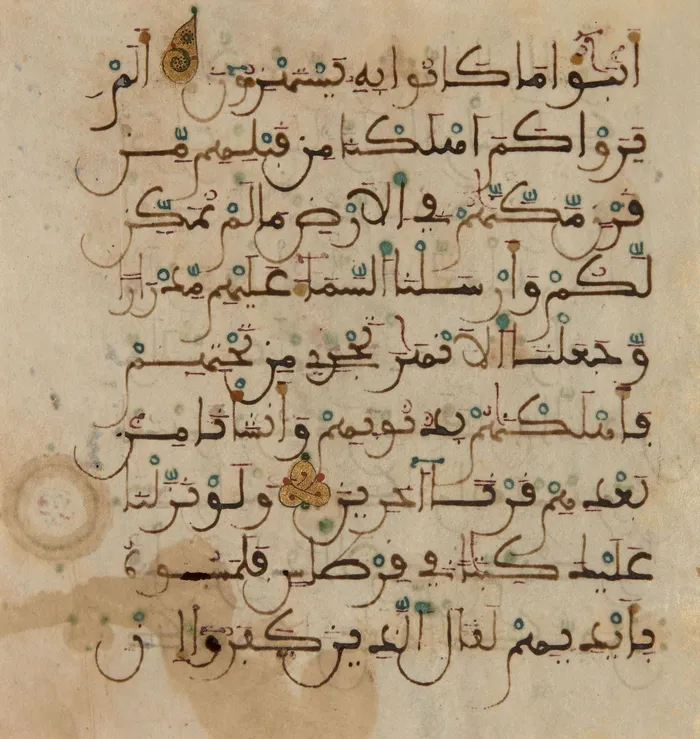 أَنبَٰٓؤُا۟ مَا كَانُوا۟ بِهِۦ يَسْتَهْزِءُونَ أَلَمْ
يَرَوْا۟ كَمْ أَهْلَكْنَا مِن قَبْلِهِم مِّن
قَرْنٍ مَّكَّنَّٰهُمْ فِى ٱلْأَرْضِ مَا لَمْ نُمَكِّن
لَّكُمْ وَأَرْسَلْنَا ٱلسَّمَآءَ عَلَيْهِم مِّدْرَارًا
وَجَعَلْنَا ٱلْأَنْهَٰرَ تَجْرِى مِن تَحْتِهِمْ
فَأَهْلَكْنَٰهُم بِذُنُوبِهِمْ وَأَنشَأْنَا مِن
بَعْدِهِمْ قَرْنًا ءَاخَرِينَ وَلَوْ نَزَّلْنَا
عَلَيْكَ كِتَٰبًا فِى قِرْطَاسٍ فَلَمَسُوهُ
بِأَيْدِيهِمْ لَقَالَ ٱلَّذِينَ كَفَرُوٓا۟ إِنْ